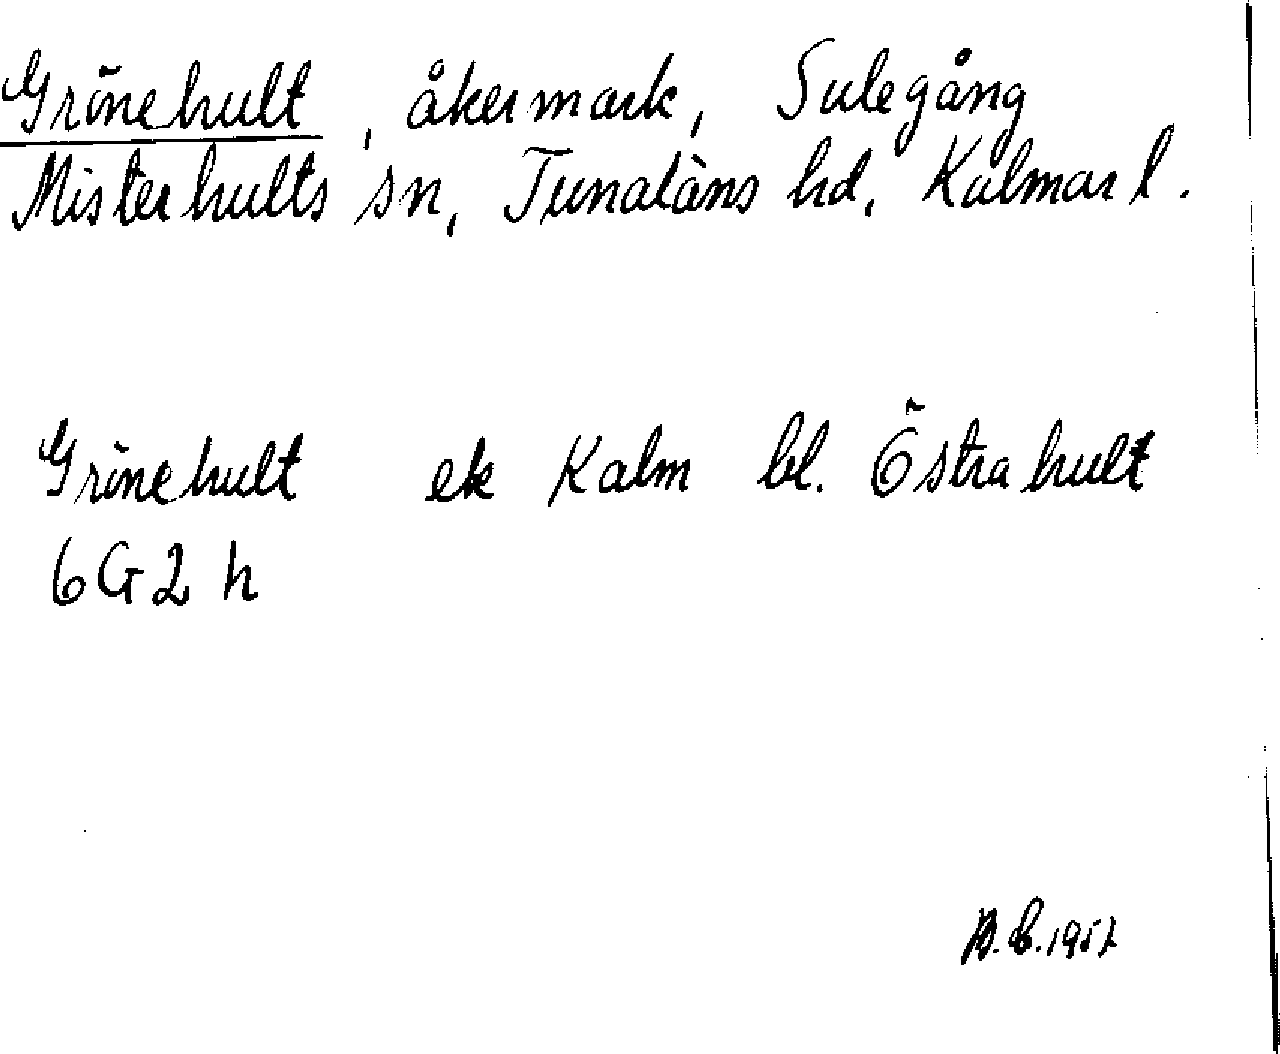 Grönehult, åkermark, Sulegång
Misterhults sn, Tunaläns hd, Kalmar l.
Grönehult ek Kalm bl. Östrahult
6G2 h
1957